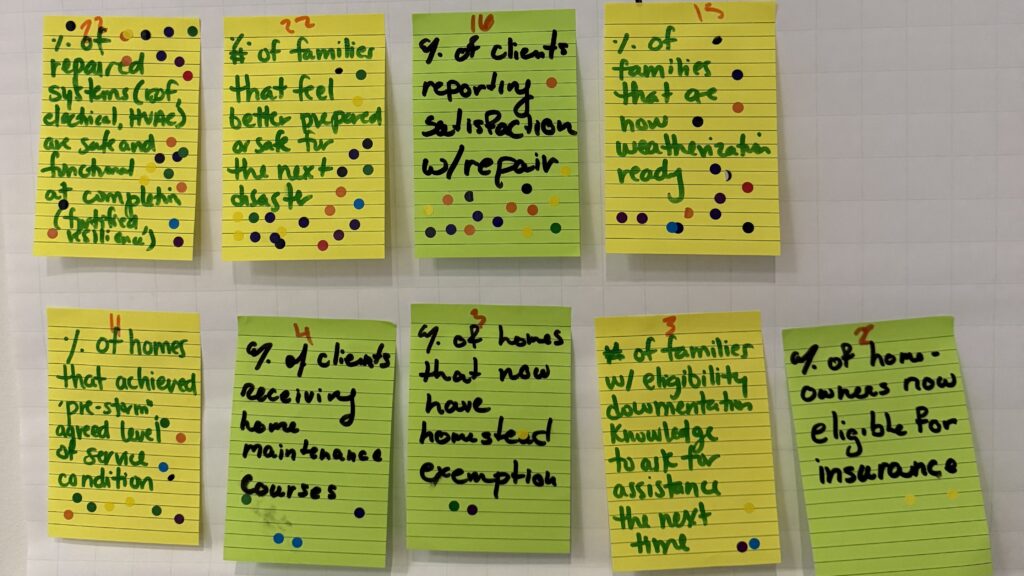 22
% of
repaired
systems (roof
electrical, HVAC)
are safe and
functional
at completin
('fortified
resilience')
22
# of families
that feel
better prepared
or safe for
the next
disaster
16
% of clients
reporting
satisfaction
w/repair
15
% of
families
that are
now
weatherization
ready
11
% of homes
that achieved
'pre-storm'
agreed level
of service
condition
4
% of clients
receiving
home
maintenance
courses
3
% of homes
that now
have
homestead
exemption
3
# of families
w/ eligibility
documentation
knowledge
to ask for
assistance
the next
time
2
% of home-
owners now
eligible for
insurance